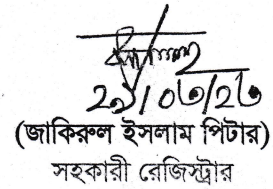 ২১/০৩/২৩
(জাকিরুল ইসলাম পিটার)
সহকারী রেজিস্ট্রার